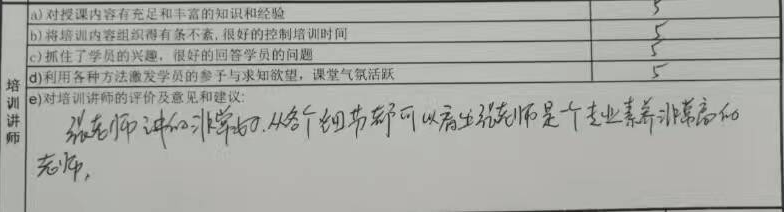 a)对授课内容有充足和丰富的知识和经验 5
b)将培训内容组织得有条不紊,很好的控制培训时间 5
c)抓住了学员的兴趣,很好的回答学员的问题 5
d)利用各种方法激发学员的参予与求知欲望,课堂气氛活跃 5
培训讲师
e)对培训讲师的评价及意见和建议:
张老师讲的非常好.从各个细节都可以看出张老师是个专业素养非常高的
老师,